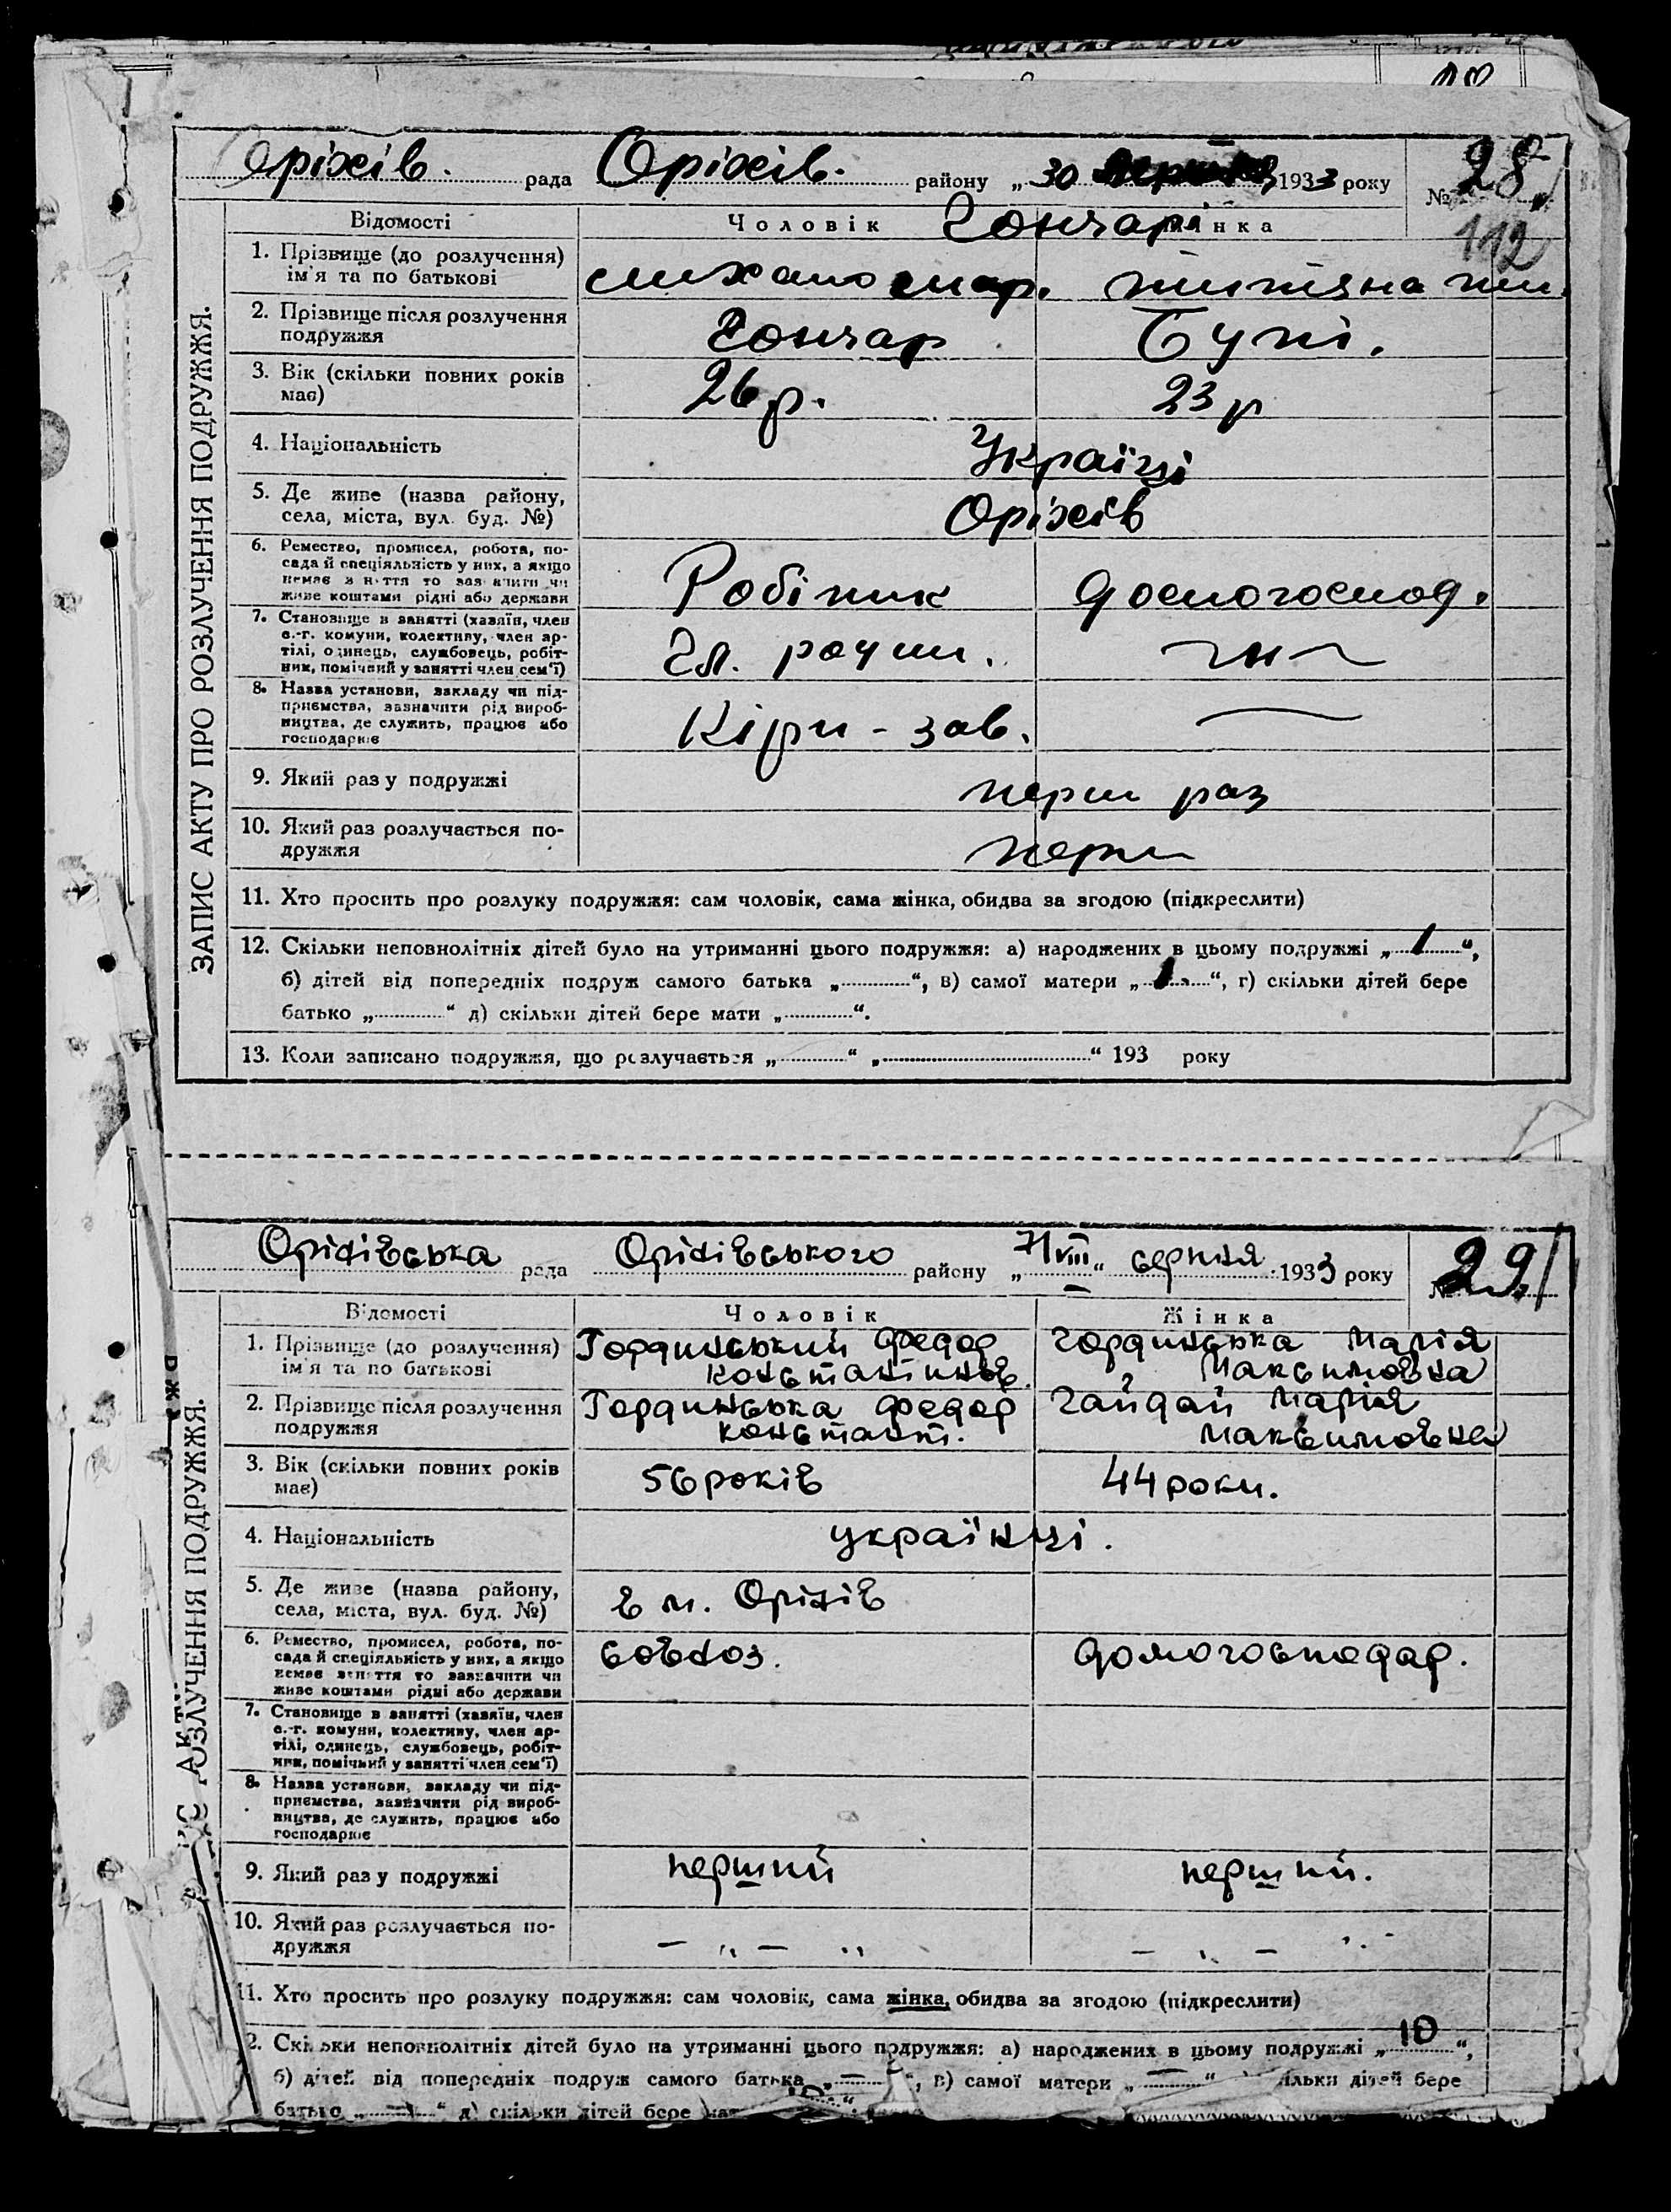 Оріхів. рада Оріхів. району „30 1933 року № 28
112
Відомості Чоловік Жінка
Гончарі
1. Прізвище (до розлучення)
ім'я та по батькові
2. Прізвище після розлучення Гончар
подружжя
3. Вік (скільки повних років 26 р. 23 р
має)
4. Національність Українці
5. Де живе (назва району, Оріхів
села, міста, вул. буд. №)
6. Ремество, промисел, робота, по-
сада й спеціяльність у них, а якщо Робітник
немає з няття то зазначити чи
живе коштами рідні або держави
7. Становище в занятті (хазяїн, член
с.-г. комуни, колективу, член ар-
тілі, одинець, службовець, робіт-
ник, помічний у занятті член сем'ї)
8. Назва установи, закладу чи під-
приємства, зазначити рід вироб-
ництва, де служить, працює або Кірп - зав.
господарює
9. Який раз у подружжі перш раз
10. Який раз розлучається по- перш
дружжя
11. Хто просить про розлуку подружжя: сам чоловік, сама жінка, обидва за згодою (підкреслити)
12. Скільки неповнолітніх дітей було на утриманні цього подружжя: а) народжених в цьому подружжі „1“,
б) дітей від попередніх подруж самого батька „ “, в) самої матери „ “, г) скільки дітей бере
батько „ “ д) скільки дітей бере мати „ “.
13. Коли записано подружжя, що розлучається „ “ „ “ 193 року
ЗАПИС АКТУ ПРО РОЗЛУЧЕННЯ ПОДРУЖЖЯ.
Оріхівська рада Оріхівського району „7/VIII“ серпня 1933 року 29
Відомості Чоловік Жінка
1. Прізвище (до розлучення) Гординський Федор Гординська Марія
ім'я та по батькові Константинов. Максимовна
2. Прізвище після розлучення Гординська Федор Гайдай Марія
подружжя Констант. Максимовна
3. Вік (скільки повних років 56 років 44 роки.
має)
4. Національність українці.
5. Де живе (назва району, в м. Оріхів
села, міста, вул. буд. №)
6. Ремество, промисел, робота, по-
сада й спеціяльність у них, а якщо совхоз. домогосподар.
немає заняття то зазначити чи
живе коштами рідні або держави
7. Становище в занятті (хазяїн, член
с.-г. комуни, колективу, член ар-
тілі, одинець, службовець, робіт-
ник, помічний у занятті член сем'ї)
8. Назва установи, закладу чи під-
приємства, зазначити рід вироб-
ництва, де служить, працює або
господарює
9. Який раз у подружжі перший перший.
10. Який раз розлучається по- — „ — „ — „ — „
дружжя
11. Хто просить про розлуку подружжя: сам чоловік, сама жінка, обидва за згодою (підкреслити)
2. Скільки неповнолітніх дітей було на утриманні цього подружжя: а) народжених в цьому подружжі „10“,
б) дітей від попередніх подруж самого батька „—“, в) самої матери „—“ ільки дітей бере
батько „—“ д) скільки дітей бере
РОЗЛУЧЕННЯ ПОДРУЖЖЯ.